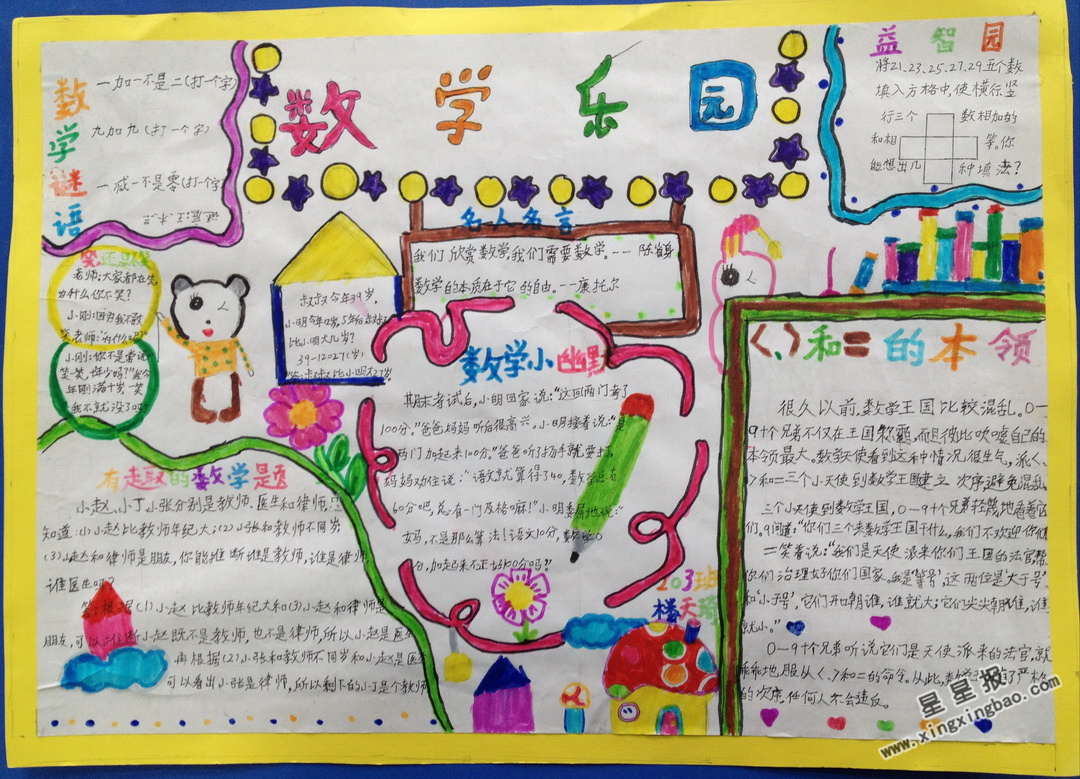 数学乐园
数学谜语
一加一不是二(打一个字)
九加九(打一个字)
一减一不是零(打一个字)
益智园
将21.23.25.27.29五个数
填入方格中,使横行竖
行三个 数相加的
和相 等。你
能想出几 种填法?
老师:大家都在笑
为什么你不笑?
小刚:因为我不敢
笑老师:为什么呢?
小刚:你不是常说
笑一笑,十年少吗?我今
年刚满十岁,一笑
我不就没了吗?
叔叔今年39岁,
小明今年12岁,5年后叔叔
比小明大几岁?
39-12=27(岁)
答:叔叔比小明大27岁
名人名言
我们欣赏数学,我们需要数学。——陈省身
数学的本质在于它的自由。——康托尔
数学小幽默
期末考试后,小明回家说:“这回两门考了
100分。”爸爸妈妈听后很高兴。小明接着说:“是
两门加起来100分。”爸爸听了扬手就要打,
妈妈劝住说:“语文就算得了40,数学总有
60分吧,总有一门及格嘛!”小明委屈地说:“
妈,不是那么算法!语文10分,数学0
分,加起来不正好100分吗?”
203班
楼天琦
有趣的数学题
小赵、小丁、小张分别是教师、医生和律师,只
知道:(1)小赵比教师年纪大;(2)小张和教师不同岁
(3)小赵和律师是朋友,你能推断谁是教师,谁是律师,
谁医生吗?
答:根据(1)小赵比教师年纪大和(3)小赵和律师是
朋友,可以推断小赵既不是教师,也不是律师,所以小赵是医生
再根据(2)小张和教师不同岁和小赵是医生
可以看出小张是律师,所以剩下的小丁是个教师
〈、〉和=的本领
很久以前,数学王国比较混乱。0—
9十个兄弟不仅在王国称霸,而且彼此吹嘘自己的
本领最大。数学天使看到这种情况很生气,派〈、
〉和=三个小天使到数学王国建立次序,避免混乱
三个小天使到数学王国,0—9十个兄弟轻蔑地看着它
们。9问道:“你们三个来数学王国干什么,我们不欢迎你们
=笑着说:“我们是天使派来你们王国的法官,帮
你们治理好你们国家。我是‘等号’,这两位是‘大于号’
和‘小于号’,它们开口朝谁,谁就大;它们尖尖朝谁,谁
就小。”
0—9十个兄弟听说它们是天使派来的法官,就
乖乖地服从〈、〉和=的命令。从此,数学王国有了严格
的次序,任何人不会违反。
星星报
www.xingxingbao.com